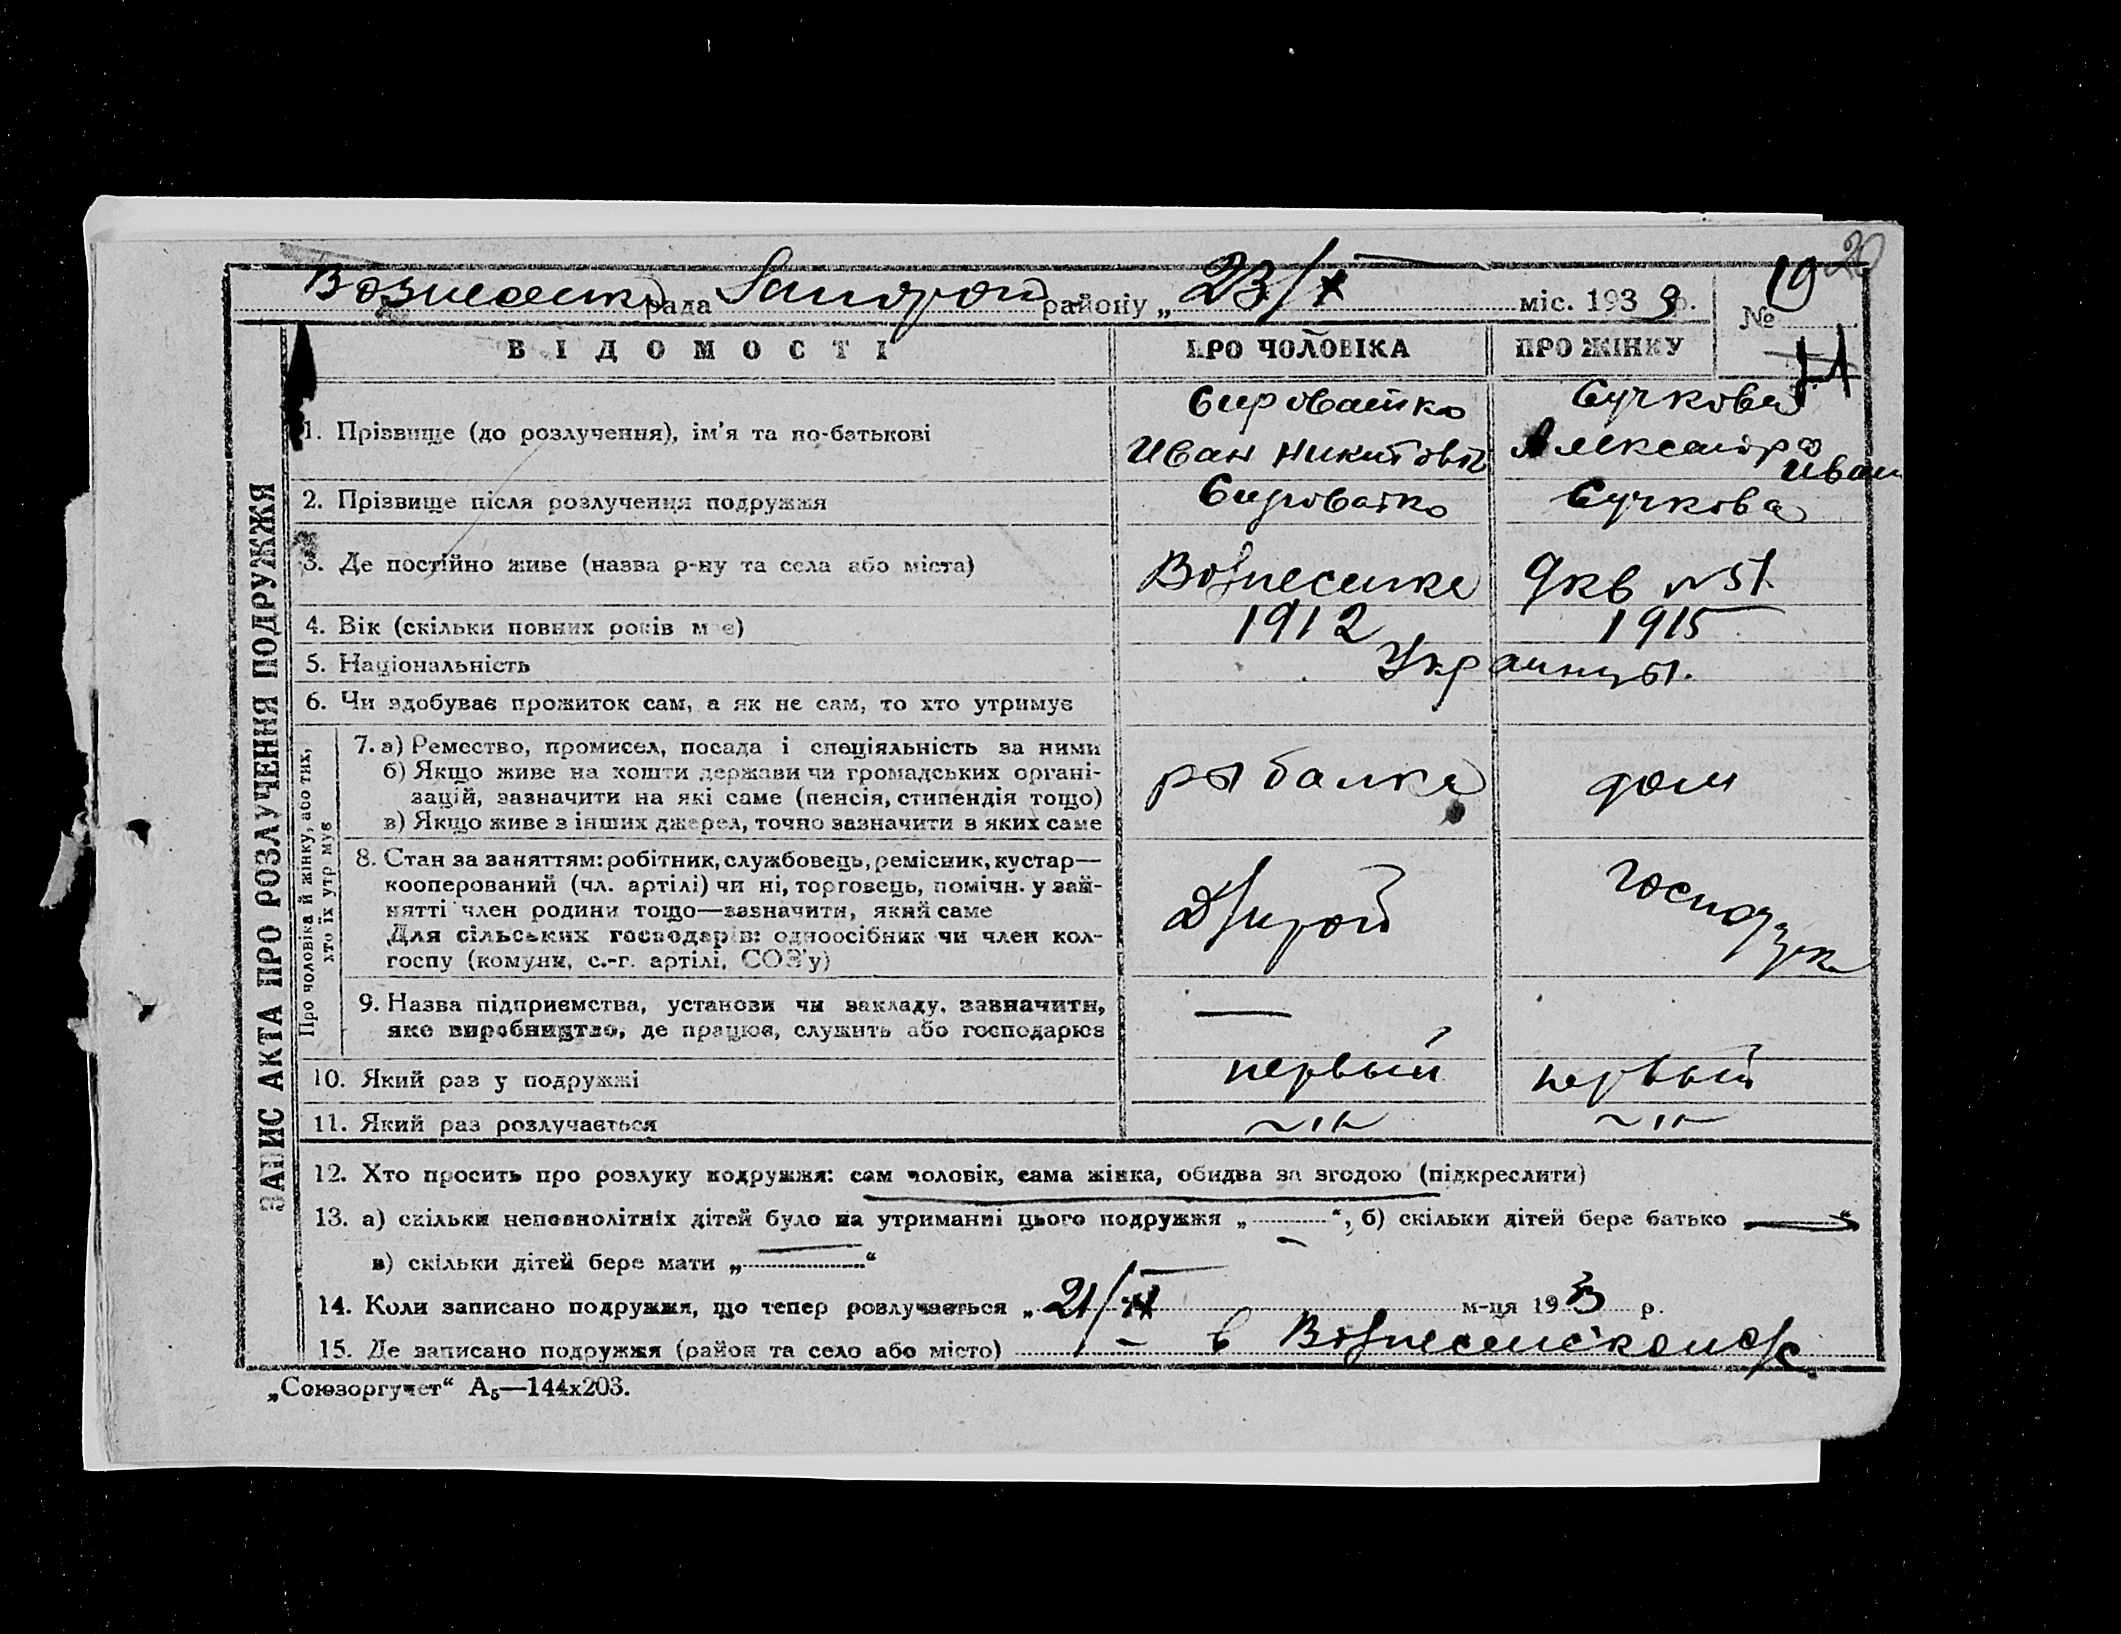 20
Вознесенк рада Запорож району „ 23/X міс. 1933 р. № 19
ВІДОМОСТІ ПРО ЧОЛОВІКА ПРО ЖІНКУ
ЗАПИС АКТА ПРО РОЗЛУЧЕННЯ ПОДРУЖЖЯ
1. Прізвище (до розлучення), ім'я та по-батькові
Сироватко
Иван Никитович
Сучкова
Александра
Иван
2. Прізвище після розлучення подружжя Сироватко Сучкова
3. Де постійно живе (назва р-ну та села або міста) Вознесенка 9 кв № 51
4. Вік (скільки повних років має) 1912 1915
5. Національність Украинцы.
6. Чи здобуває прожиток сам, а як не сам, то хто утримує
Про чоловіка й жінку, або тих,
хто їх утримує
7. а) Ремество, промисел, посада і спеціяльність за ними
б) Якщо живе на кошти держави чи громадських органі-
зацій, зазначити на які саме (пенсія, стипендія тощо)
в) Якщо живе з інших джерел, точно зазначити з яких саме
рыбалка дом
8. Стан за заняттям: робітник, службовець, ремісник, кустар—
кооперований (чл. артілі) чи ні, торговець, помічн. у зай-
нятті член родини тощо—зазначити, який саме
Для сільських господарів: одноосібник чи член кол-
госпу (комуни, с.-г. артілі, СОЗ'у)
9. Назва підприємства, установи чи закладу, зазначити,
яке виробництво, де працює, служить або господарює
—
10. Який раз у подружжі первый первый
11. Який раз розлучається ~ " ~ ~ " ~
12. Хто просить про розлуку подружжя: сам чоловік, сама жінка, обидва за згодою (підкреслити)
13. а) скільки неповнолітніх дітей було на утриманні цього подружжя „ — “, б) скільки дітей бере батько — “
в) скільки дітей бере мати „ — “
14. Коли записано подружжя, що тепер розлучається „ 21/ м-ця 1933 р.
15. Де записано подружжя (район та село або місто) в Вознесенском с/с
„Союзоргучет“ А₅—144х203.